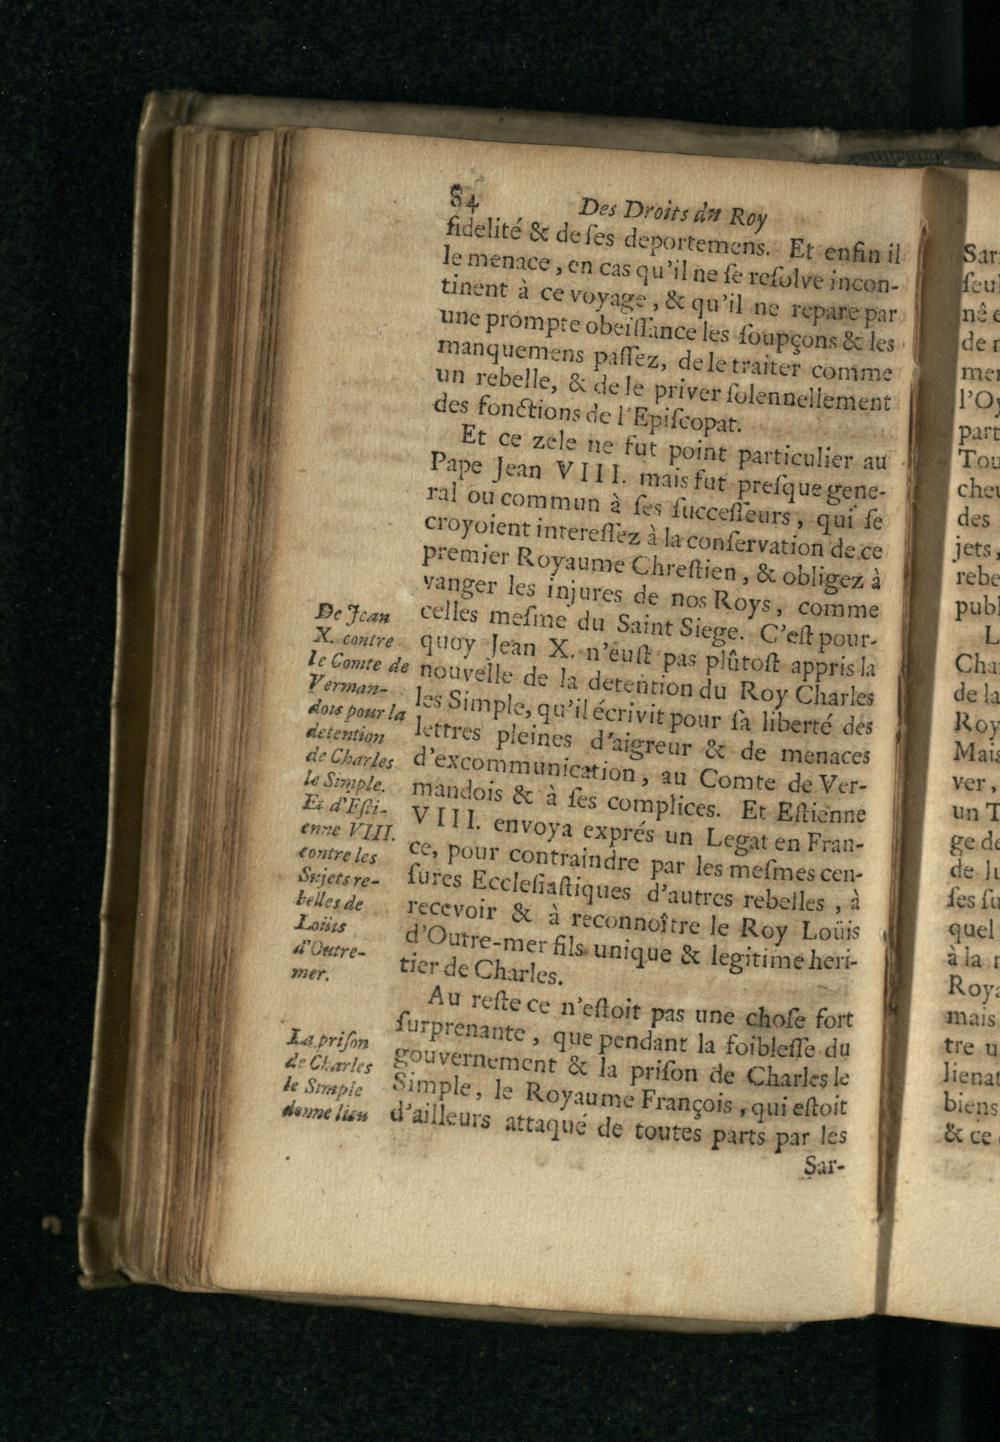 84 Des Droits du Roy
fidelité & de ſes deportemens. Et enfin il
le menace, en cas qu'il ne ſe reſolve incon-
tinent à ce voyage, & qu'il ne repare par
une prompte obeiſſance les ſoupçons & les
manquemens paſſez, de le traiter comme
un rebelle, & de le priver ſolennellement
des fonctions de l'Epiſcopat.
Et ce zele ne fut point particulier au
Pape Jean VIII. mais fut preſque gene-
ral ou commun à ſes ſucceſſeurs, qui ſe
croyoient intereſſez à la conſervation de ce
premier Royaume Chreſtien, & obligez à
vanger les injures de nos Roys, comme
celles meſme du Saint Siege. C'eſt pour-
quoy Jean X. n'euſt pas plûtoſt appris la
nouvelle de la detention du Roy Charles
les Simple, qu'il écrivit pour ſa liberté des
lettres pleines d'aigreur & de menaces
d'excommunication, au Comte de Ver-
mandois & à ſes complices. Et Eſtienne
VIII. envoya exprés un Legat en Fran-
ce, pour contraindre par les meſmes cen-
ſures Eccleſiaſtiques d'autres rebelles, à
recevoir & à reconnoître le Roy Loüis
d'Outre-mer fils unique & legitime heri-
tier de Charles.
Au reſte ce n'eſtoit pas une choſe fort
ſurprenante, que pendant la foibleſſe du
gouvernement & la priſon de Charles le
Simple, le Royaume François, qui eſtoit
d'ailleurs attaqué de toutes parts par les
Sar-
De Jean
X. contre
le Comte de
Verman-
dois pour la
detention
de Charles
le Simple.
Et d'Eſti-
enne VIII.
contre les
Sujets re-
belles de
Loüis
d'Outre-
mer.
La priſon
de Charles
le Simple
donne lieu
Sar
ſeul
nê e
de r
mer
l'Oy
part
Tou
cheu
des
jets,
rebe
publ
L
Cha
de la
Roy
Mais
ver,
un T
ge de
de lu
ſes ſu
quel
à la r
Roya
mais
tre u
lienat
biens
& ce